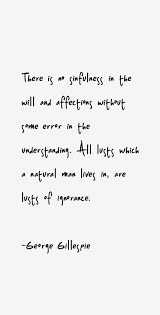 There is no sinfulness in the
will and affections without
some error in the
understanding. All lusts which
a natural man lives in, are
lusts of ignorance.
-George Gillespie